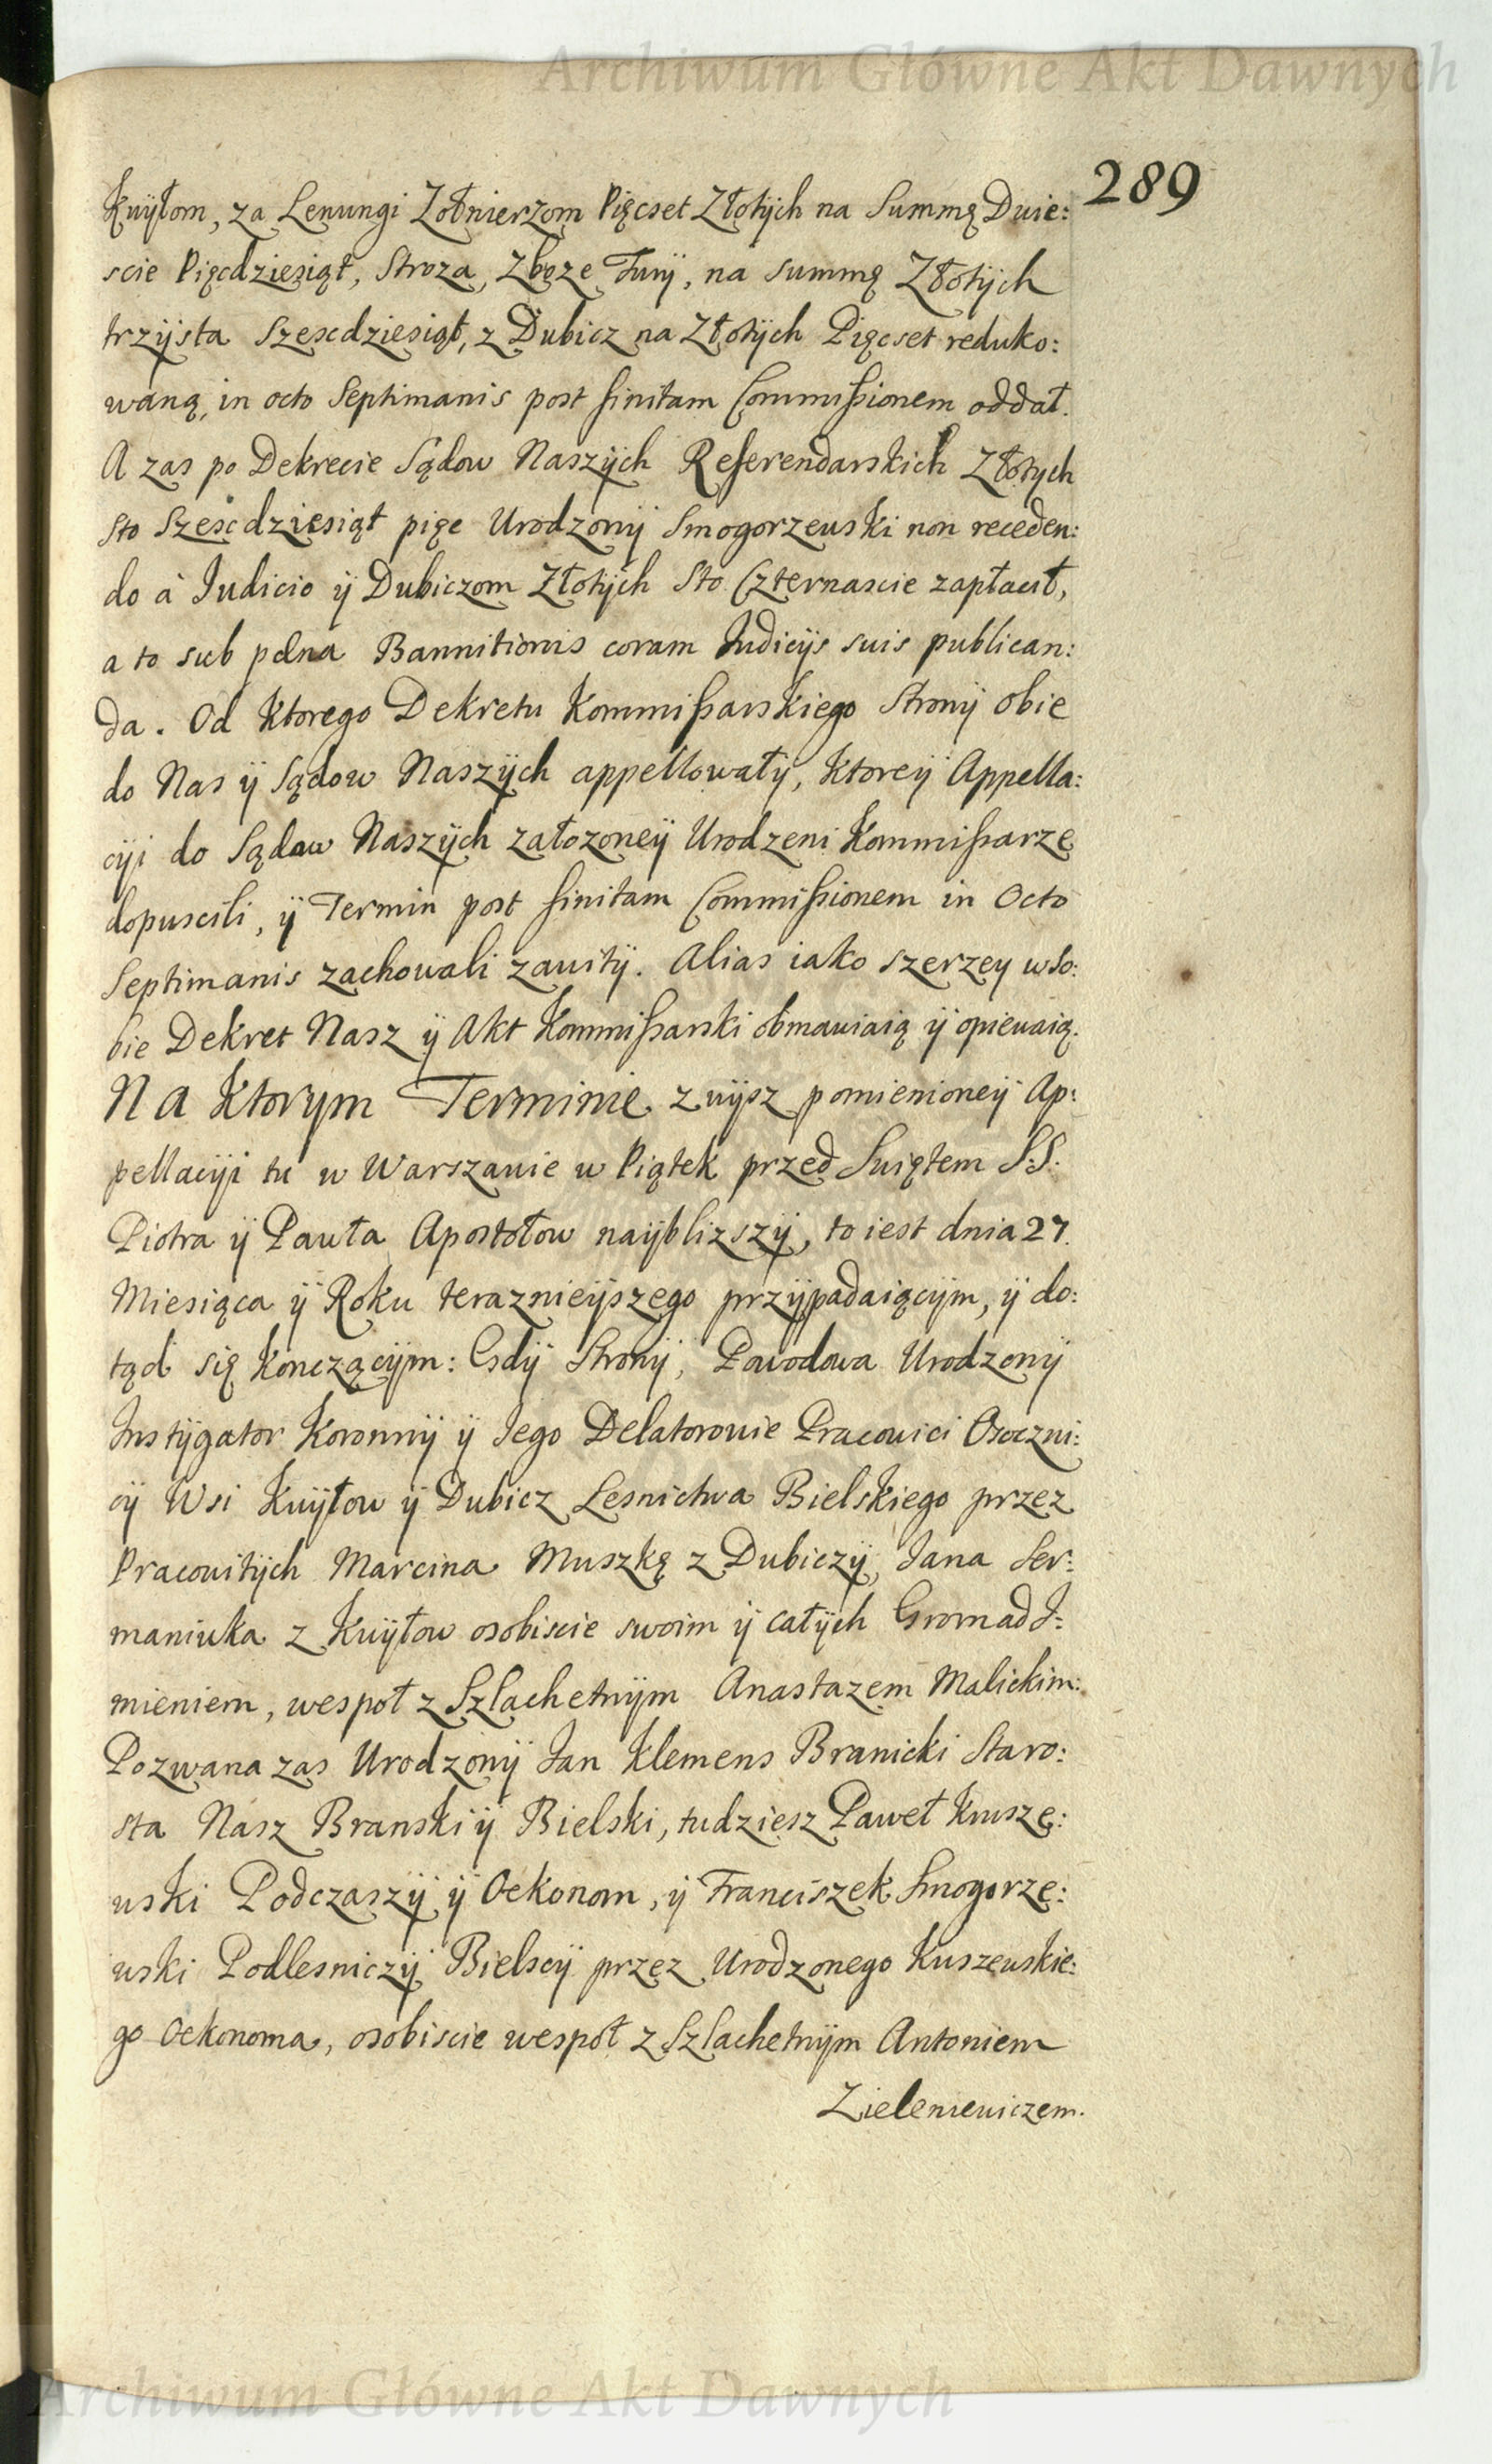 Archiwum Główne Akt Dawnych
289
Kuÿłom, za Lenungi Zołnierzom Pięcset Złotÿch na Summę Dwie:
scie Pięcdziesiąt, Stroza, Zboze Furÿ, na summę Złotÿch
trzÿsta Szescdziesiąt, z Dubicz na Złotÿch Pięcset reduko:
waną, in octo Septimanis post finitam Commissionem oddał.
A zas po Dekrecie Sądow Naszÿch Referendarskich Złotych
Sto Szescdziesiąt pięc Urodzonÿ Smogorzewski non receden:
do à Iudicio ÿ Dubiczom Złotÿch Sto Czternascie zapłacił,
a to sub pœna Bannitionis coram Iudicÿs suis publican:
da. Od Ktorego Dekretu Kommissarskiego Stronÿ obie
do Nas ÿ Sądow Naszÿch appellowałÿ, Ktoreÿ Appella:
cÿi do Sądow Naszÿch załozoneÿ Urodzeni Kommissarze
dopuscili, ÿ Termin post finitam Commissionem in Octo
Septimanis zachowali zawitÿ. Alias iako szerzey wso:
bie Dekret Nasz ÿ Akt Kommissarski obmawiaią ÿ opiewaią.
Na Ktorym Terminie z wÿsz pomienioneÿ Ap:
pellacÿi tu w Warszawie w Piątek przed Swiętem S.S.
Piotra ÿ Pawła Apostołow naÿblizszÿ, to iest dnia 27.
Miesiąca ÿ Roku teraznieÿszego przÿpadaiącÿm, ÿ do:
tąd się Konczącÿm: Gdÿ Stronÿ, Powodowa Urodzonÿ
Instÿgator Koronnÿ ÿ Iego Delatorowie Pracowici Osoczni:
cÿ Wsi Kuÿłow ÿ Dubicz Lesnictwa Bielskiego przez
Pracowitÿch Marcina Muszkę z Dubiczÿ, Iana Ser:
maniuka z Kuÿłow osobiscie swoim ÿ całÿch Gromad I:
mieniem, wespoł z Szlachetnÿm Anastazem Malickim:
Pozwana zas Urodzonÿ Ian Klemens Branicki Staro:
sta Nasz Branski ÿ Bielski, tudziesz Paweł Krusze:
wski Podczaszÿ ÿ Oekonom, ÿ Franciszek Smogorze:
wski Podlesniczÿ Bielscÿ przez Urodzonego Kuszewskie:
go Oekonoma, osobiscie wespoł z Szlachetnÿm Antoniem
Zieleniewiczem.
Archiwum Główne Akt Dawnych